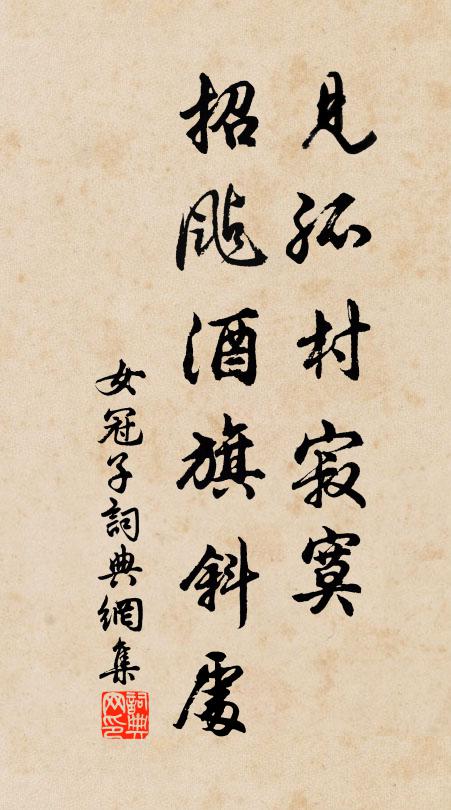 見孤村寂寞
招颭酒旗斜處
女冠子詞典網集
詞典
网印